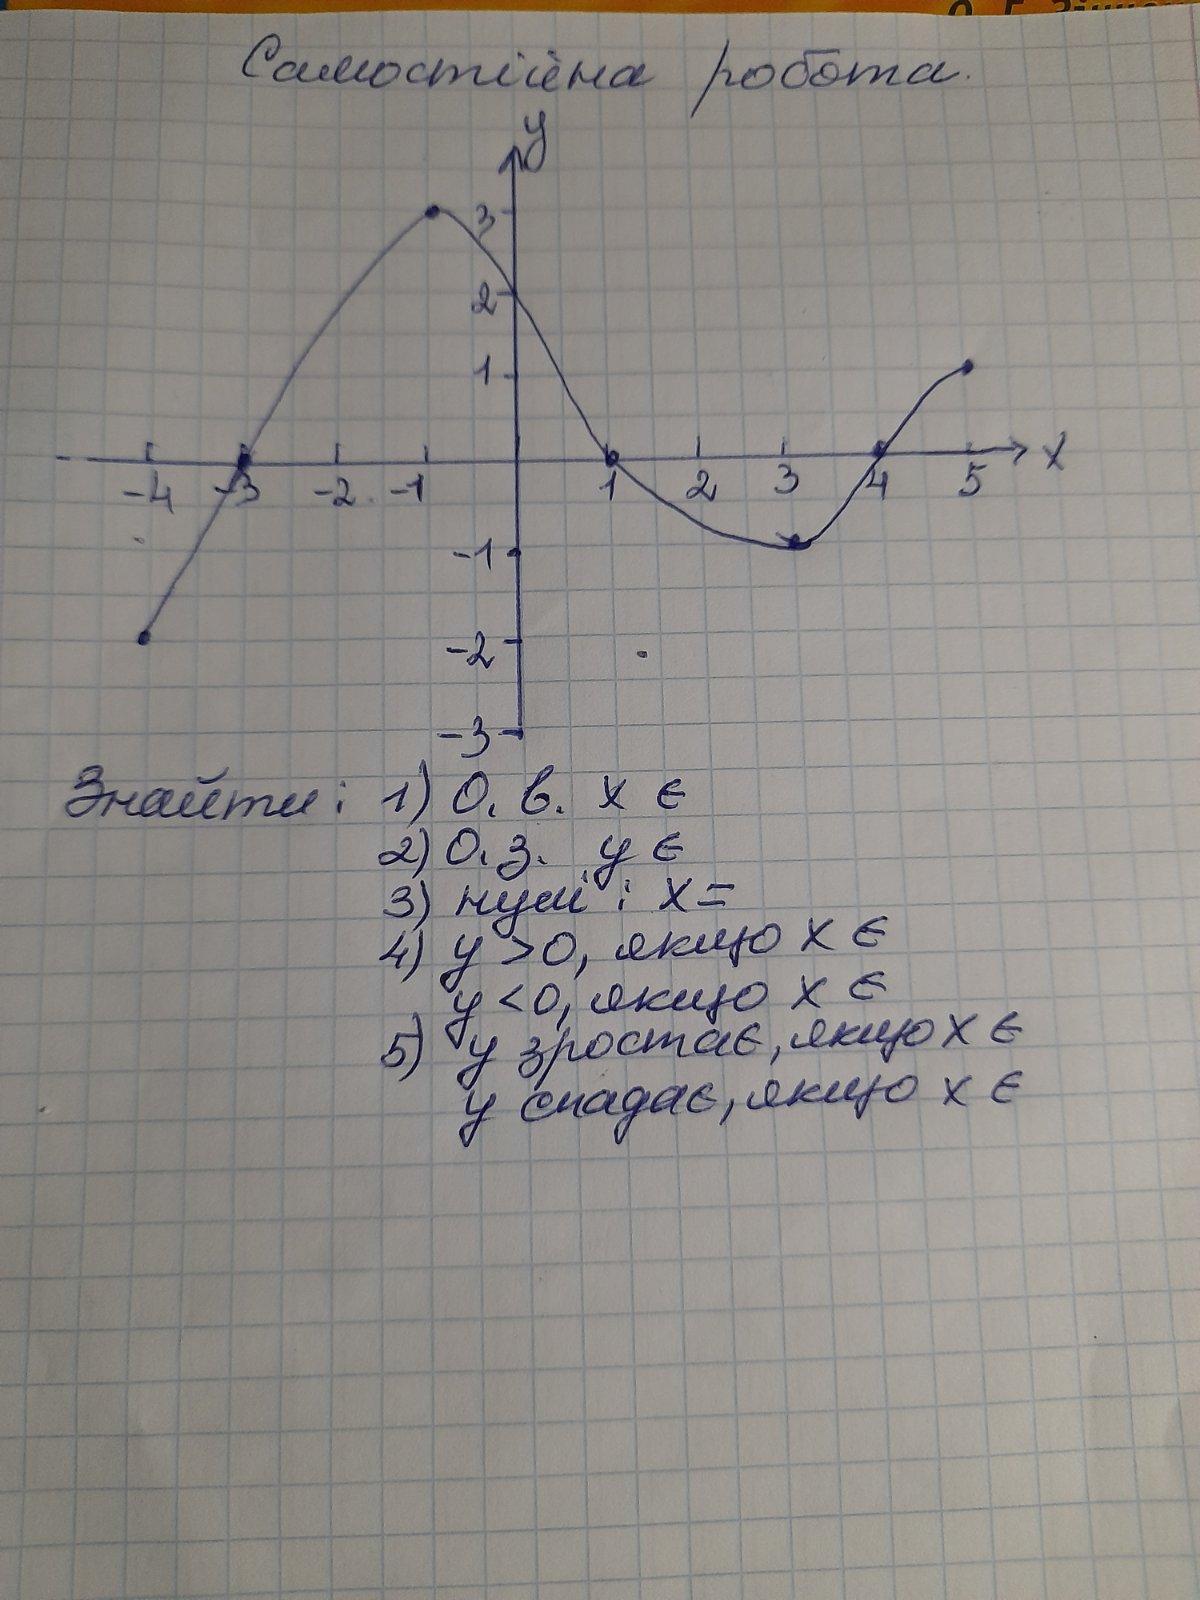 Самостійна робота.
y
3
2
1
-4 -3 -2 -1 1 2 3 4 5 x
-1
-2
-3
Знайти: 1) О. в. x є
2) О. з. y є
3) нулі: x =
4) y > 0, якщо x є
y < 0, якщо x є
5) y зростає, якщо x є
y спадає, якщо x є